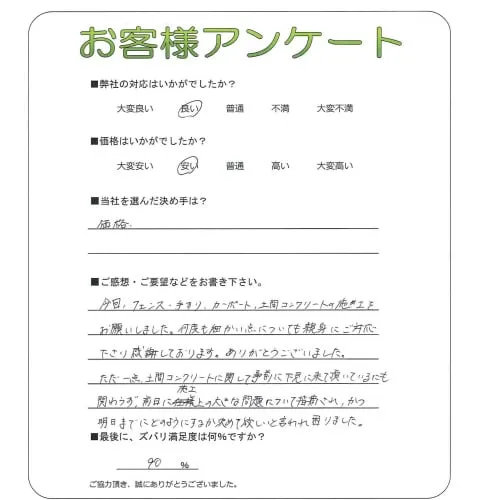 お客様アンケート
■弊社の対応はいかがでしたか?
大変良い 良い 普通 不満 大変不満
■価格はいかがでしたか?
大変安い 安い 普通 高い 大変高い
■当社を選んだ決め手は?
価格.
■ご感想・ご要望などをお書き下さい。
今回、フェンス・手すり、カーポート、土間コンクリートの施工を
お願いしました。何度も細かい点についても親身にご対応
下さり感謝しております。ありがとうございました。
ただ一点、土間コンクリートに関して事前に下見に来て頂いているにも
関わらず、前日に施工上の大きな問題について指摘され、かつ
明日までにどのようにするか決めて欲しいと言われ困りました。
■最後に、ズバリ満足度は何%ですか?
90 %
ご協力頂き、誠にありがとうございました。